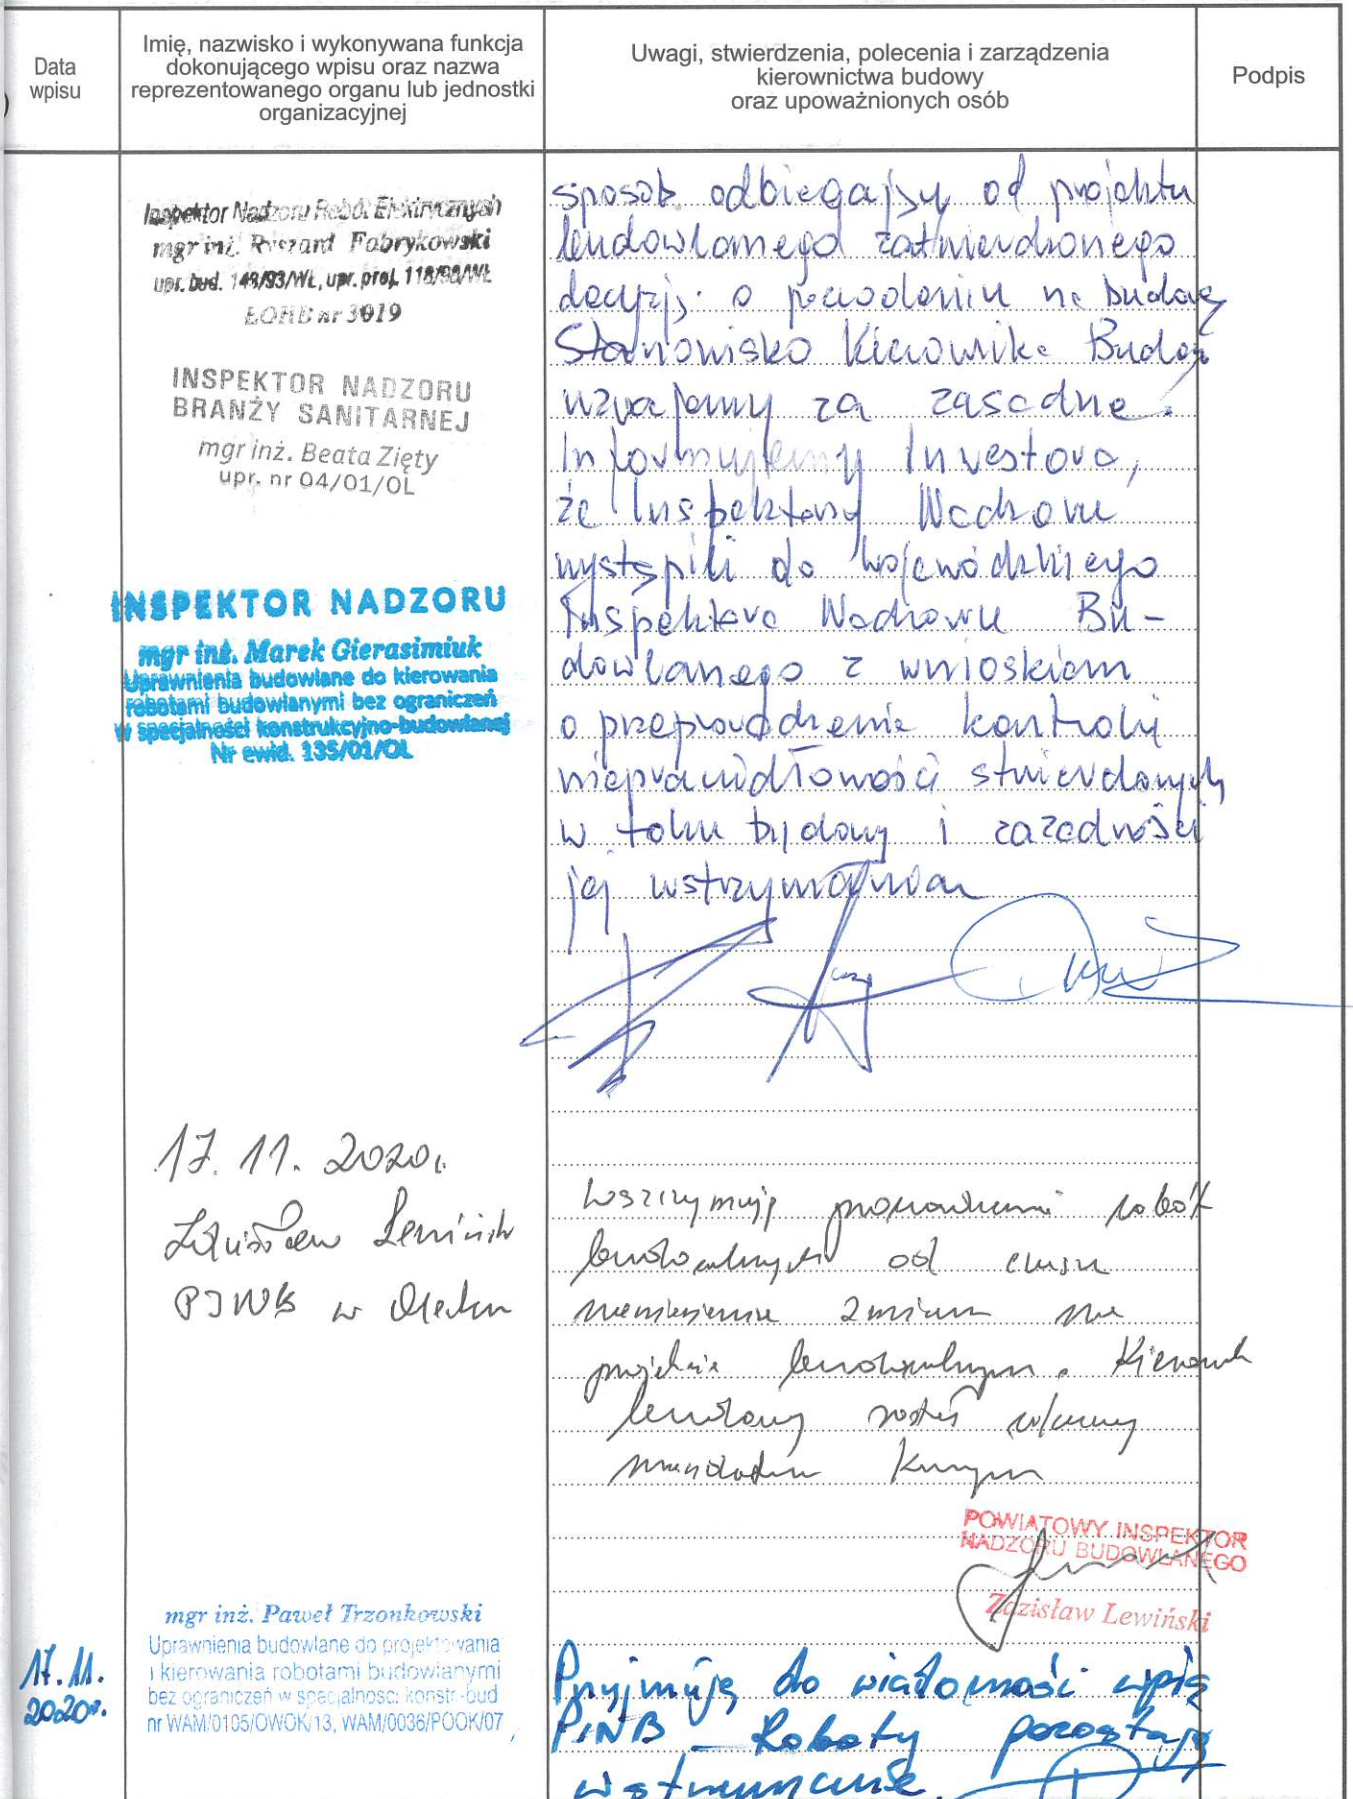 Data
wpisu
Imię, nazwisko i wykonywana funkcja
dokonującego wpisu oraz nazwa
reprezentowanego organu lub jednostki
organizacyjnej
Uwagi, stwierdzenia, polecenia i zarządzenia
kierownictwa budowy
oraz upoważnionych osób
Podpis
Inspektor Nadzoru Robót Elektrycznych
mgr inż. Ryszard Fabrykowski
upr. bud. 148/93/WŁ, upr. proj. 118/98/WŁ
ŁOIIB nr 3019
INSPEKTOR NADZORU
BRANŻY SANITARNEJ
mgr inż. Beata Zięty
upr. nr 04/01/OL
INSPEKTOR NADZORU
mgr inż. Marek Gierasimiuk
Uprawnienia budowlane do kierowania
robotami budowlanymi bez ograniczeń
w specjalności konstrukcyjno-budowlanej
Nr ewid. 135/01/OL
sposób odbiegający od projektu
budowlanego zatwierdzonego
decyzją o pozwoleniu na budowę
Stanowisko Kierownika Budowy
uznajemy za zasadne.
Informujemy Inwestora,
że Inspektorzy Nadzoru
wystąpili do Wojewódzkiego
Inspektora Nadzoru Bu-
dowlanego z wnioskiem
o przeprowadzenie kontroli
nieprawidłowości stwierdzonych
w toku budowy i zasadności
jej wstrzymania
17.11.2020r.
Zdzisław Lewiński
PINB w Olecku
Wstrzymuję prowadzenie robót
budowlanych od czasu
naniesienia zmian na
projekcie budowlanym. Kierownik
budowy został ukarany
mandatem karnym
POWIATOWY INSPEKTOR
NADZORU BUDOWLANEGO
Zdzisław Lewiński
17.11.
2020r.
mgr inż. Paweł Trzonkowski
Uprawnienia budowlane do projektowania
i kierowania robotami budowlanymi
bez ograniczeń w specjalności konstr.-bud
nr WAM/0105/OWOK/13, WAM/0036/POOK/07
Przyjmuję do wiadomości wpis
PINB - Roboty pozostają
wstrzymane.